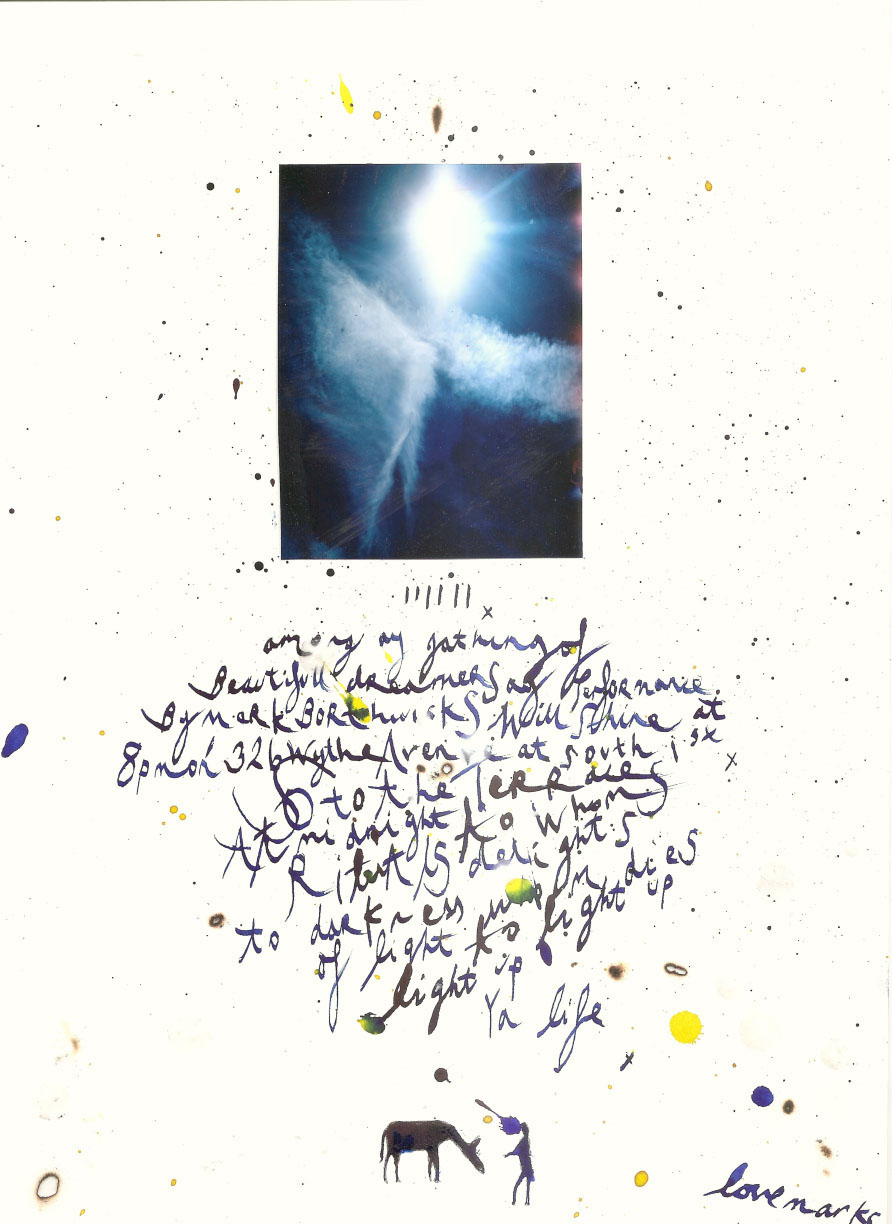 among ay gathing of
Beautifull dreamers ay Performance.
By Mark Borthwicks Will Shine at
8pm on 326 Wythe Avenue at south 1 st x
x
to the Terraces
At midnight to whom
delights
to darkness when dies
of light to light up
light up
Ya life
x
lovemarks